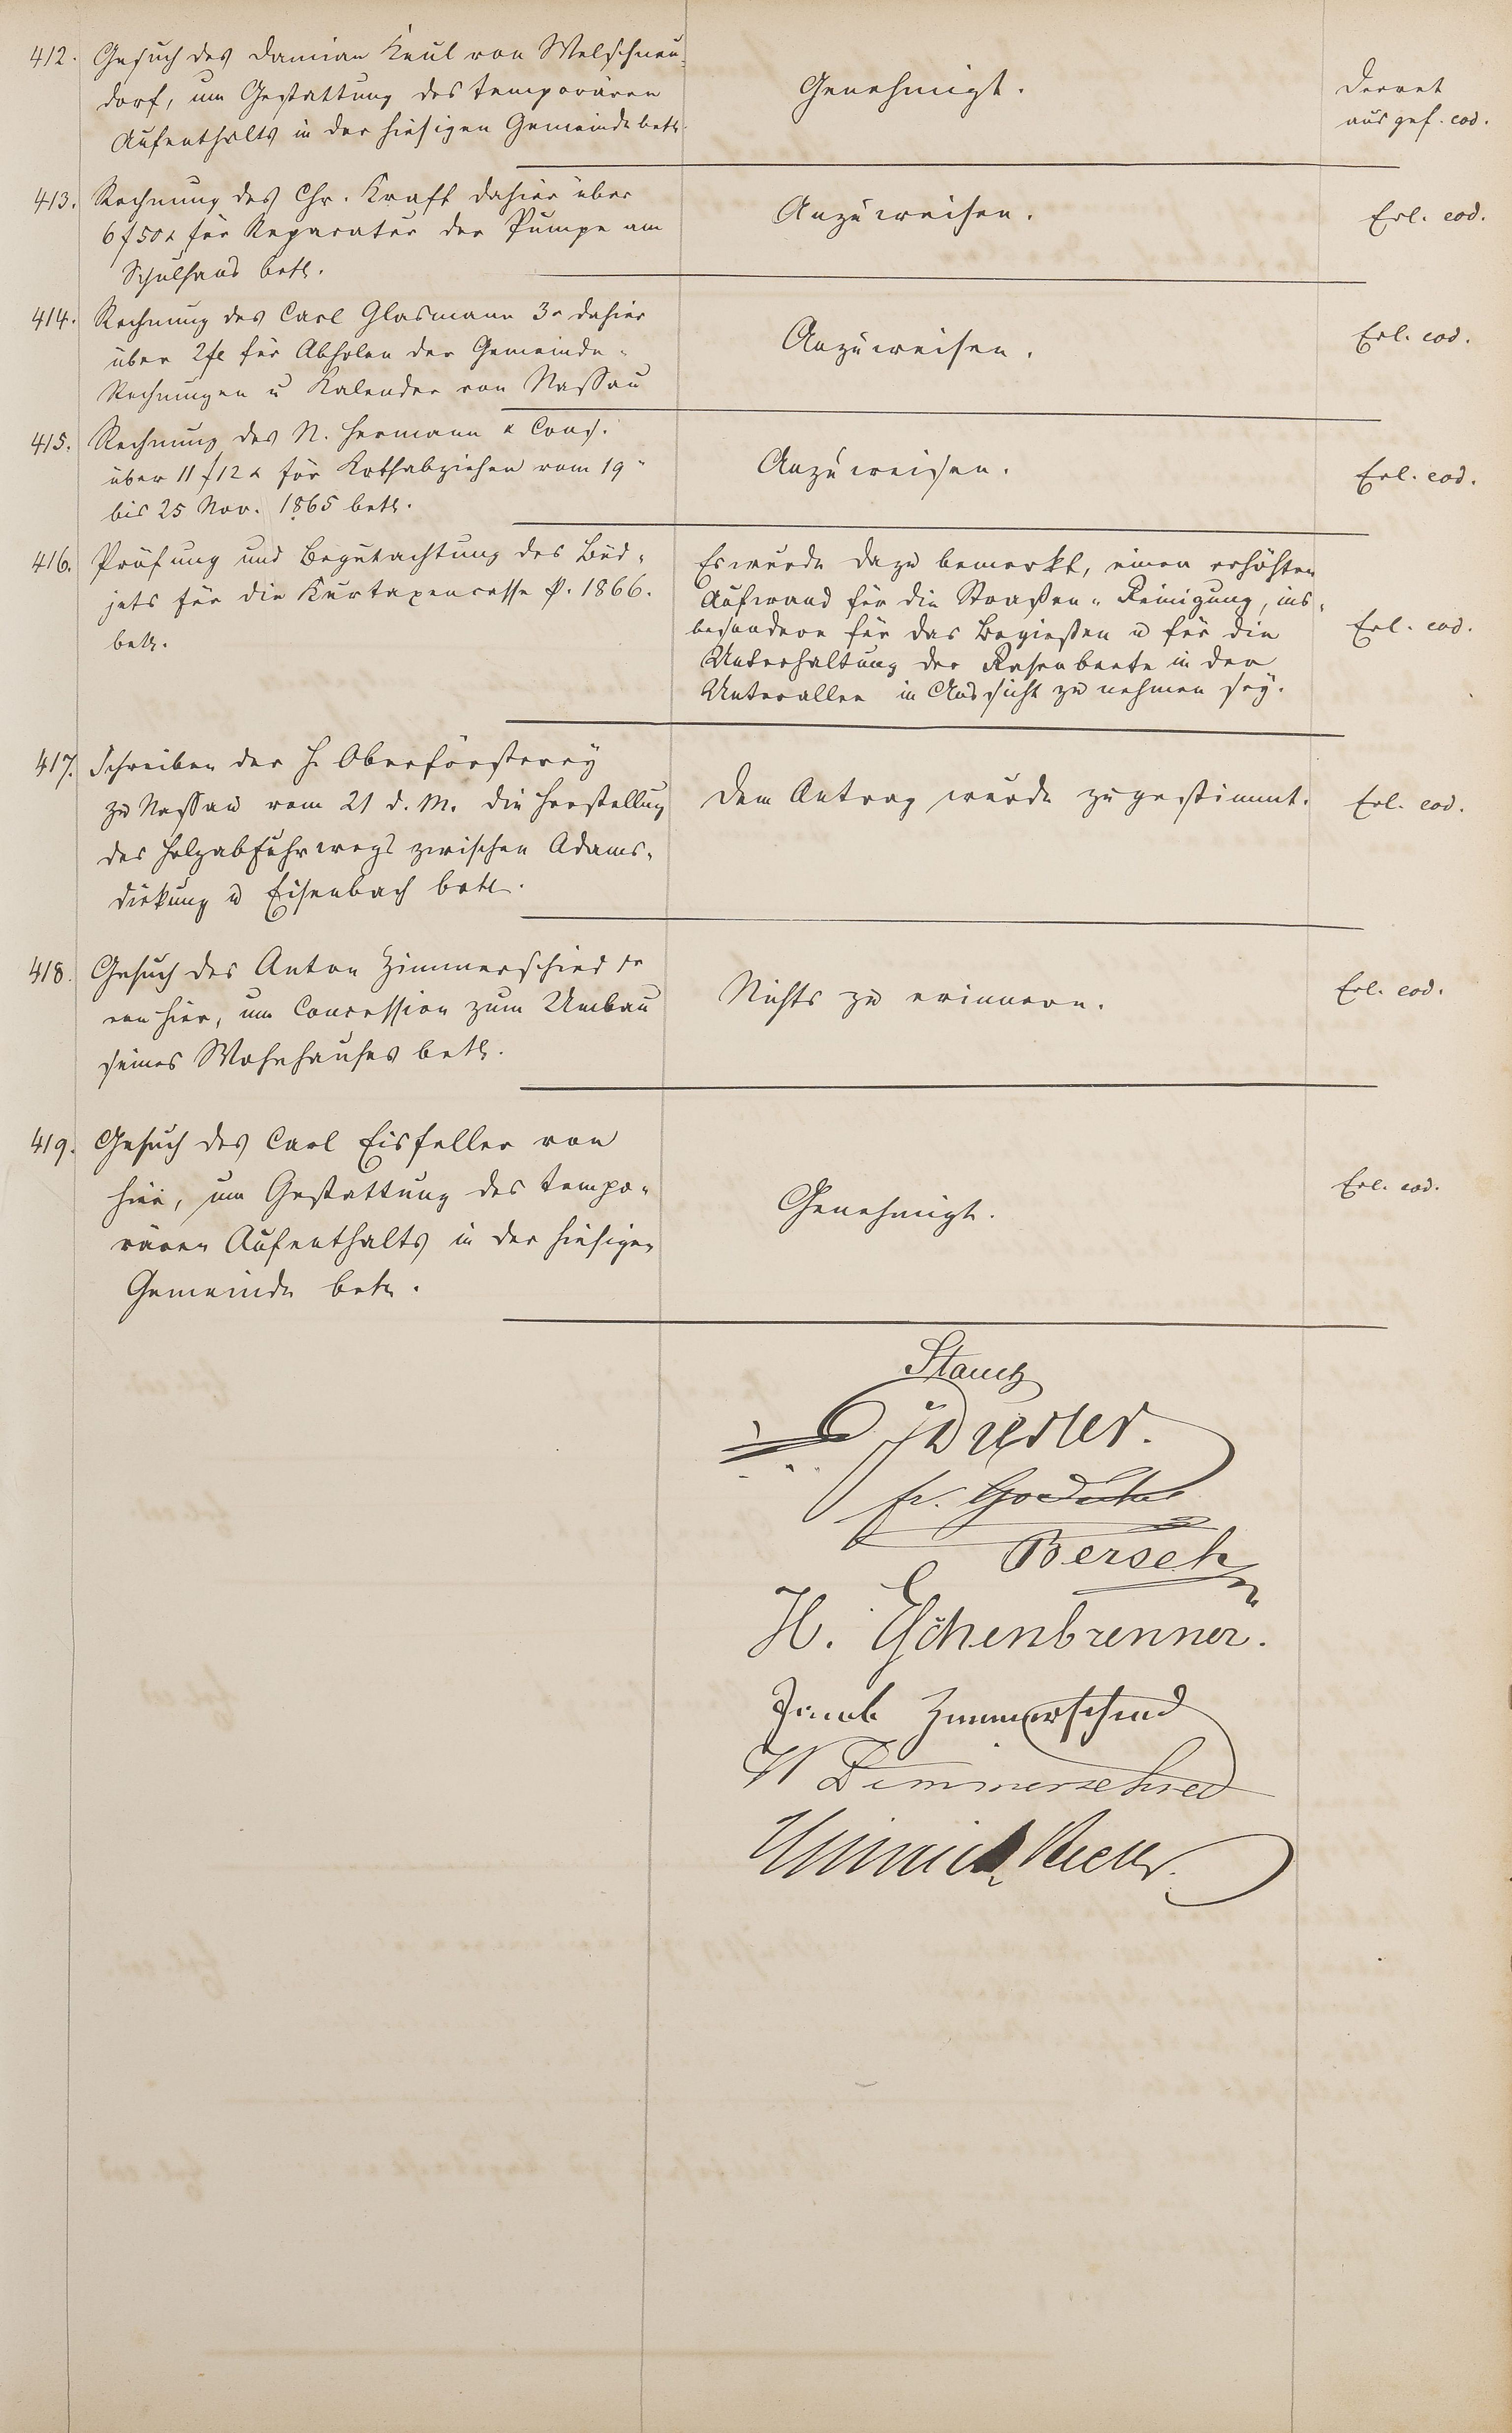 412. Gesuch des Damian Keul von Welschneu-
dorf, um Gestattung des temporären
Aufenthalts in der hiesigen Gemeinde betr.
Genehmigt.
Decret
ausgef. eod.
413. Rechnung des Chr. Kraft dahier über
6 f 50 x für Reparatur der Pumpe am
Schulhaus betr.
Anzuweisen.
Erl. eod.
414. Rechnung des Carl Glasmann 3r dahier
über 2 fl für Abholen der Gemeinde-
Rechnungen u Kalender von Nassau
Anzuweisen.
Erl. eod.
415. Rechnung des N. Hermann & Cons.
über 11 f 12 x für Kothabziehen vom 19-
bis 25 Nov. 1865 betr.
Anzuweisen.
Erl. eod.
416. Prüfung und Begutachtung des Büd-
jets für die Kurtaxencasse p. 1866.
betr.
Es wurde dazu bemerkt, einen erhöhten
Aufwand für die Straßen-Reinigung, ins-
besondere für das Begießen u für die
Unterhaltung der Rasenbeete in der
Unterallee in Aussicht zu nehmen sey.
Erl. eod.
417. Schreiben der H. Oberförsterey
zu Nassau vom 21 d. M. die Herstellung
des Holzabfuhrwegs zwischen Adams-
dickung u Eisenbach betr.
Dem Antrag wurde zugestimmt.
Erl. eod.
418. Gesuch des Anton Zimmerschied 1r
von hier, um Concession zum Umbau
seines Wohnhauses betr.
Nichts zu erinnern.
Erl. eod.
419. Gesuch des Carl Eisfeller von
hier, um Gestattung des tempo-
rären Aufenthalts in der hiesigen
Gemeinde betr.
Genehmigt.
Erl. eod.
Fr.
Bersch
H. Eschenbrenner.
Jacob Zimmerschied
W Zimmerschied
Heinrich